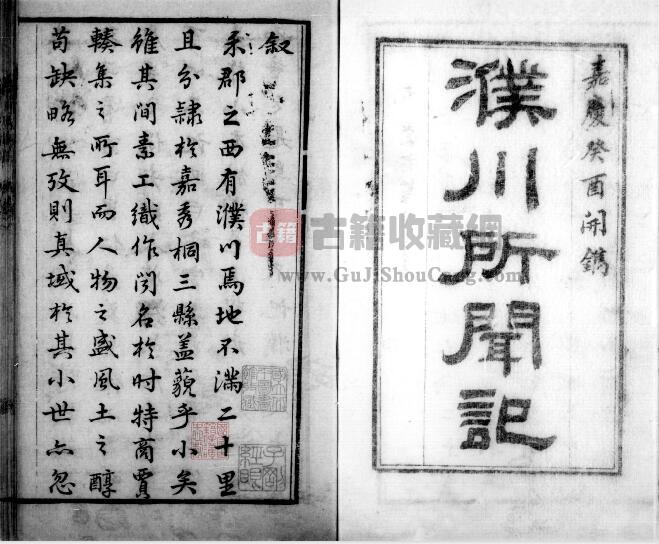 嘉慶癸酉開鐫
濮川所聞記
叙
禾郡之西有濮川焉地不滿二十里
且分隸於嘉秀桐三縣蓋藐乎小矣
維其間素工織作閧名於時特商賈
轃集之所耳而人物之盛風土之醇
苟缺略無攷則真域於其小世亦忽
古籍
古籍收藏網
www.GuJiShouCang.com